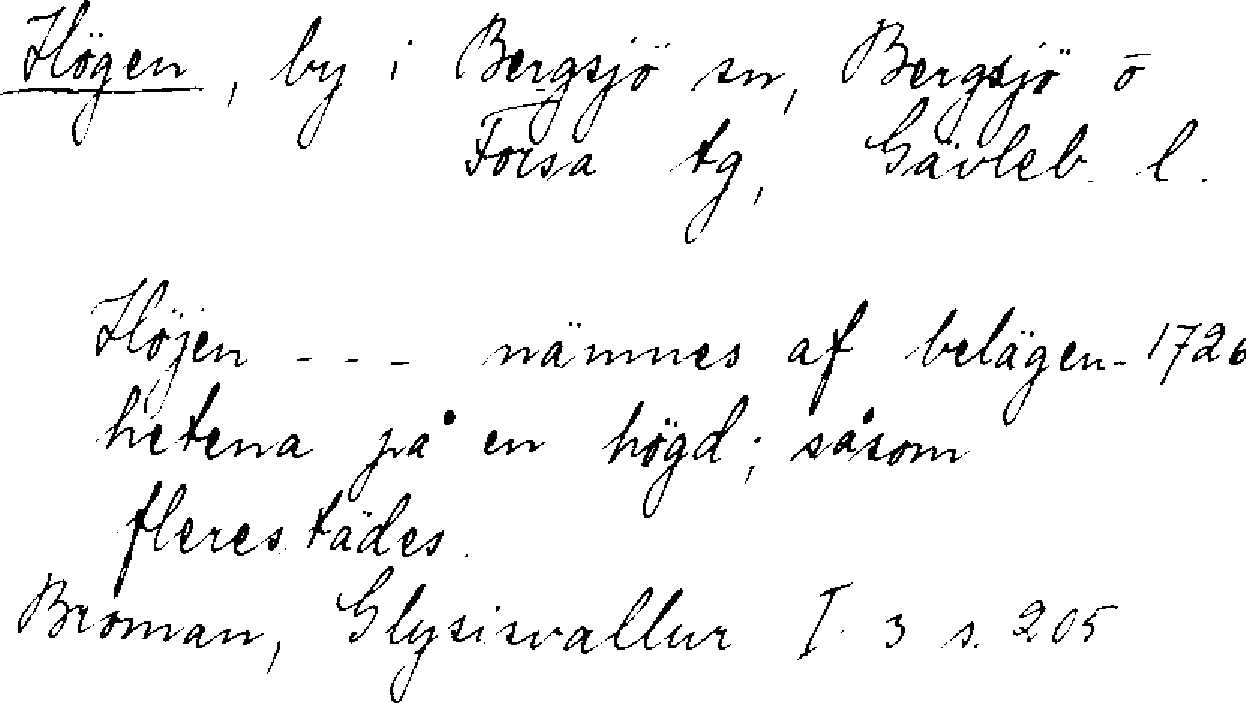 Högen, by i Bergsjö sn, Bergsjö o
Forsa tg, Gävleb. l.
Höjen - - - nämnes af belägen- 1726
hetena på en högd; såsom
flerestädes.
Broman, Glysisvallur I. 3 s. 205